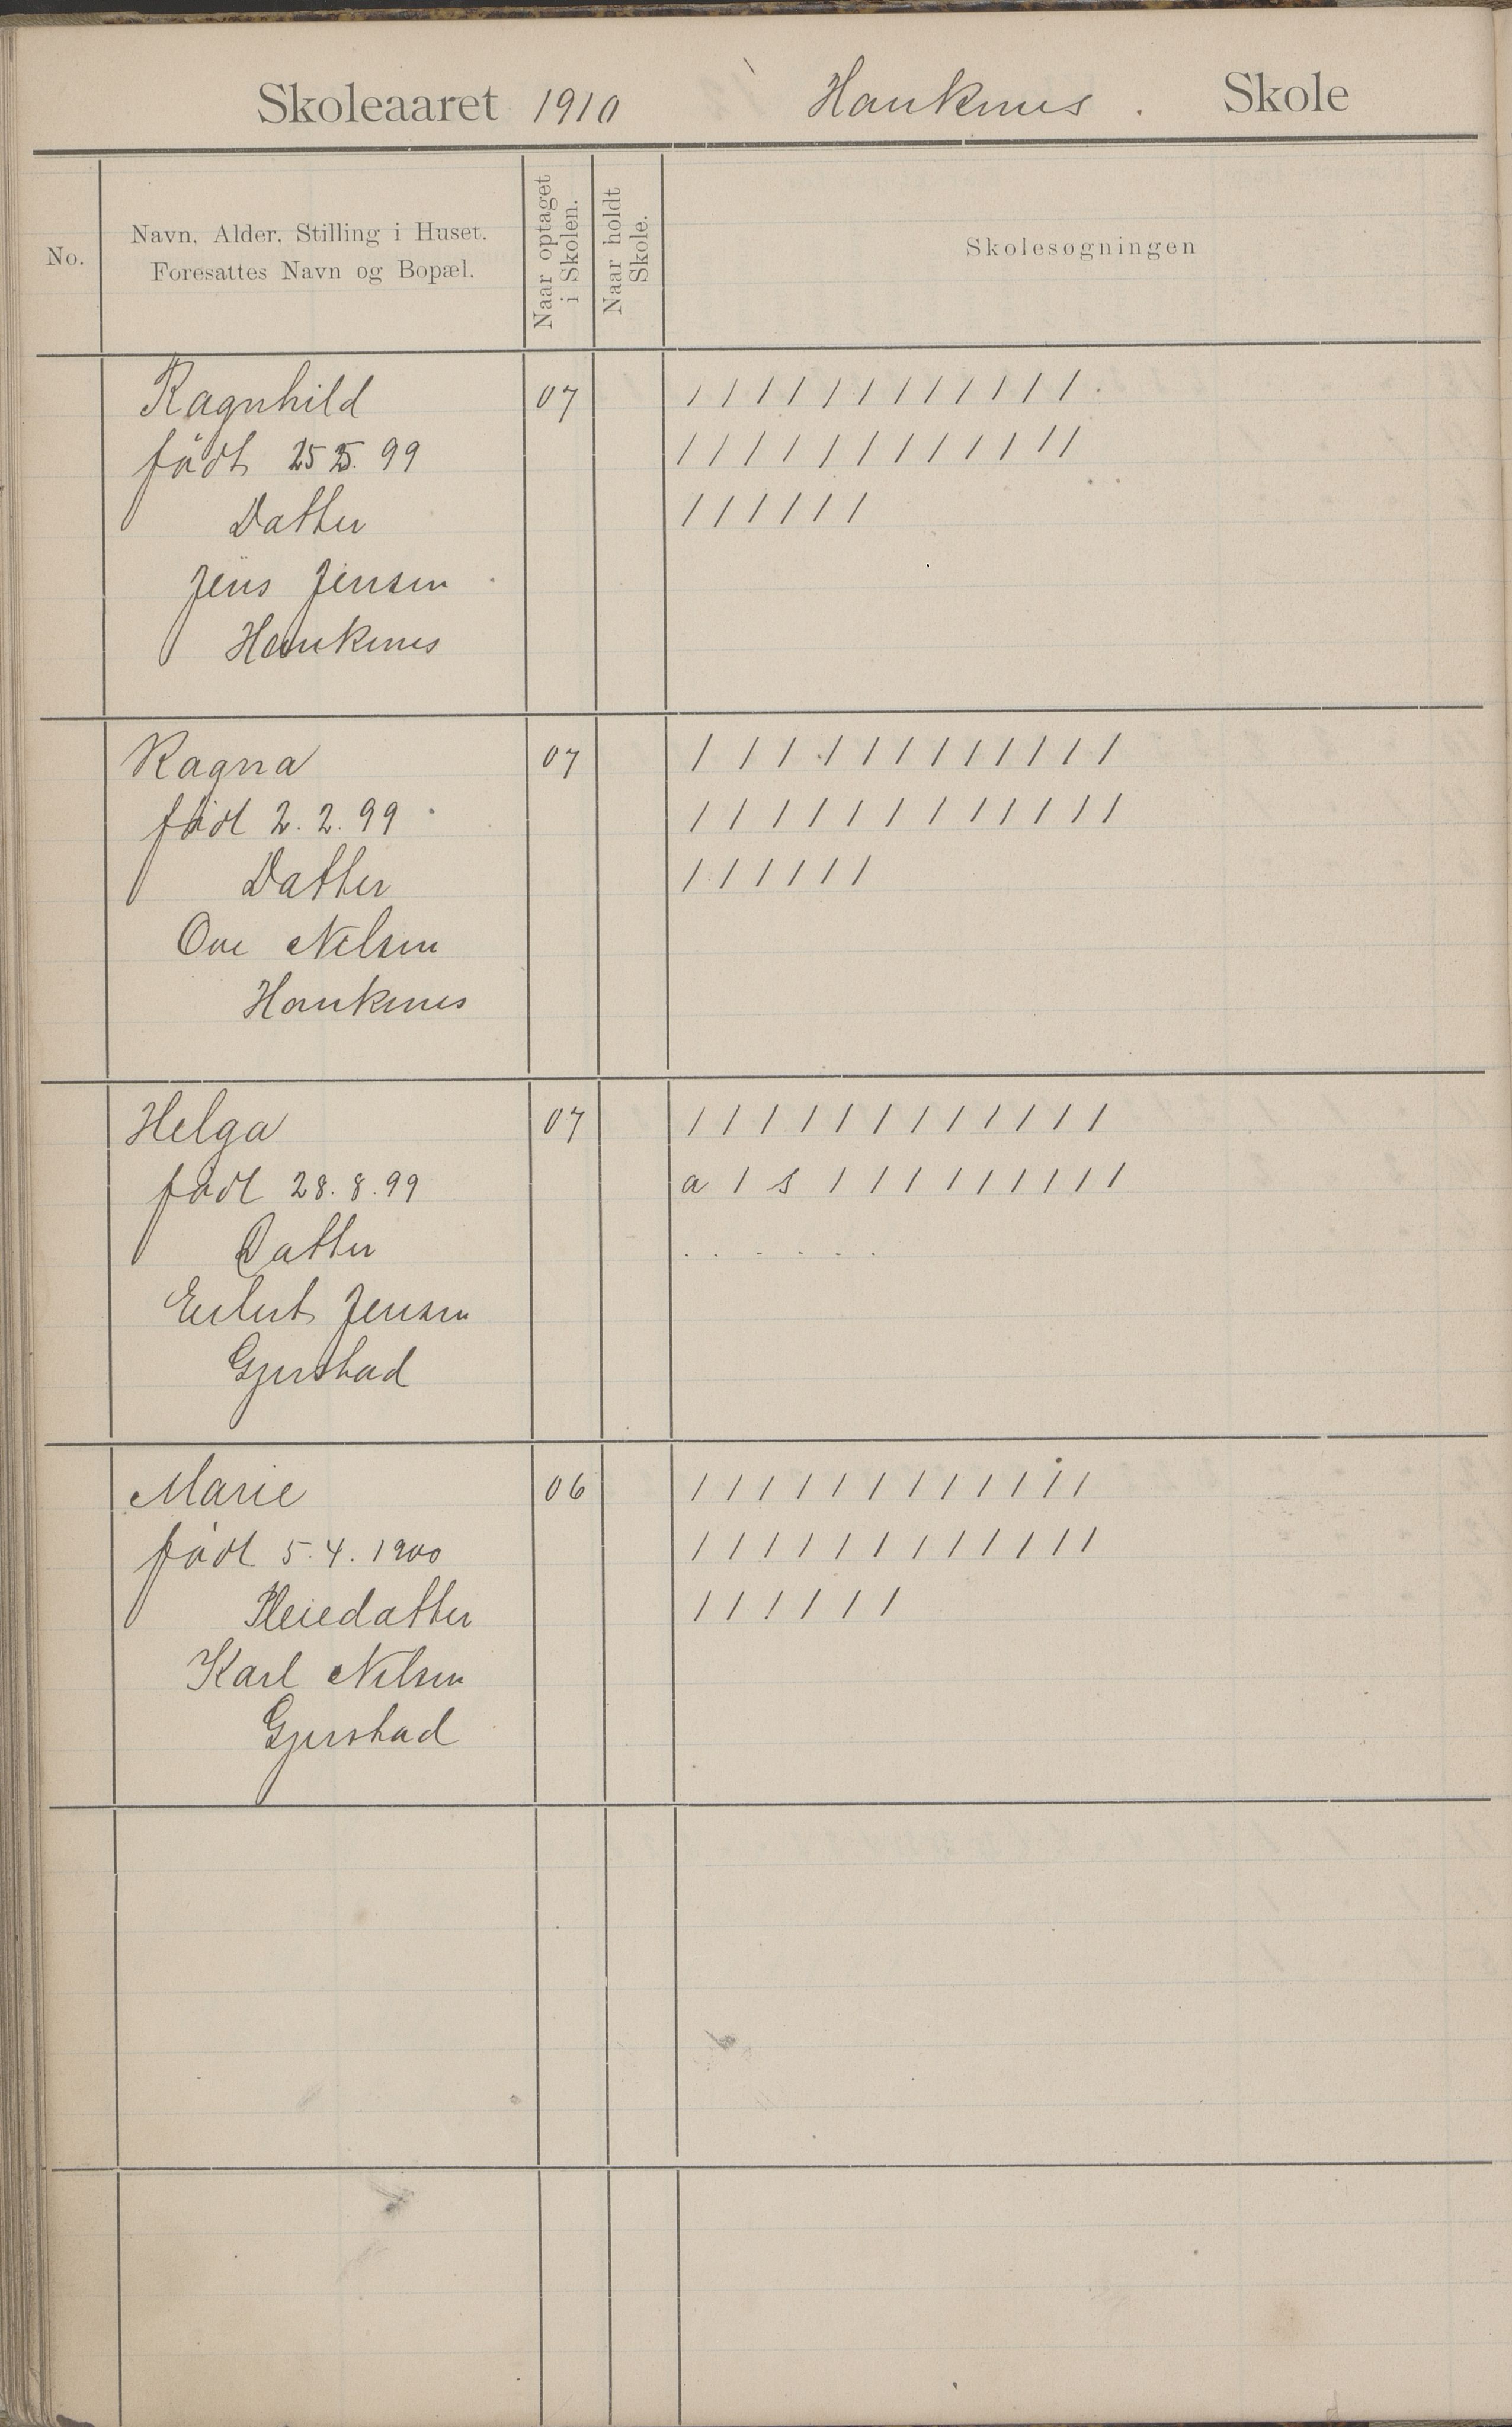 Skoleaaret 1910 Hauknes. Skole
No.
Navn, Alder, Stilling i Huset.
Foresattes Navn og Bopæl.
Naar optaget
i Skolen.
Naar holdt
Skole.
Skolesøgningen
Ragnhild 07 / / / / / / / / / / / /
født 25 5. 99 / / / / / / / / / / / /
Datter / / / / / /
Jens Jensen
Hauknes
Ragna 07 / / / / / / / / / / / /
född 2. 2. 99 / / / / / / / / / / / /
Datter / / / / / /
Ove Nilsen
Hauknes
Helga 07 / / / / / / / / / / / /
född 28. 8. 99 a / s / / / / / / / / /
Datter . . . . . .
Jensen
Gjerstad
Marie 06 / / / / / / / / / / / /
född 5. 4. 1900 / / / / / / / / / / / /
Pleiedatter / / / / / /
Karl Nilsen
Gjerstad